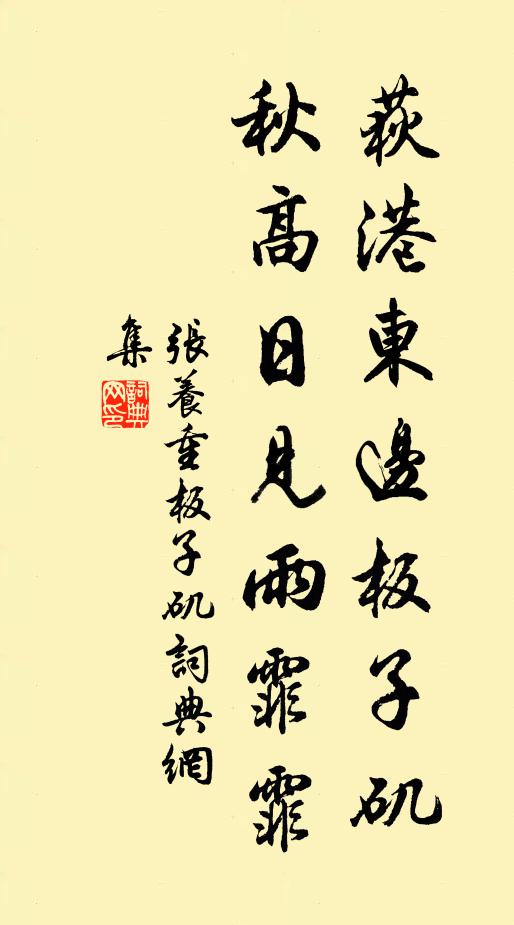 荻港東邊板子矶
秋高日見雨霏霏
張養重板子矶詞典網
集
詞典
网印